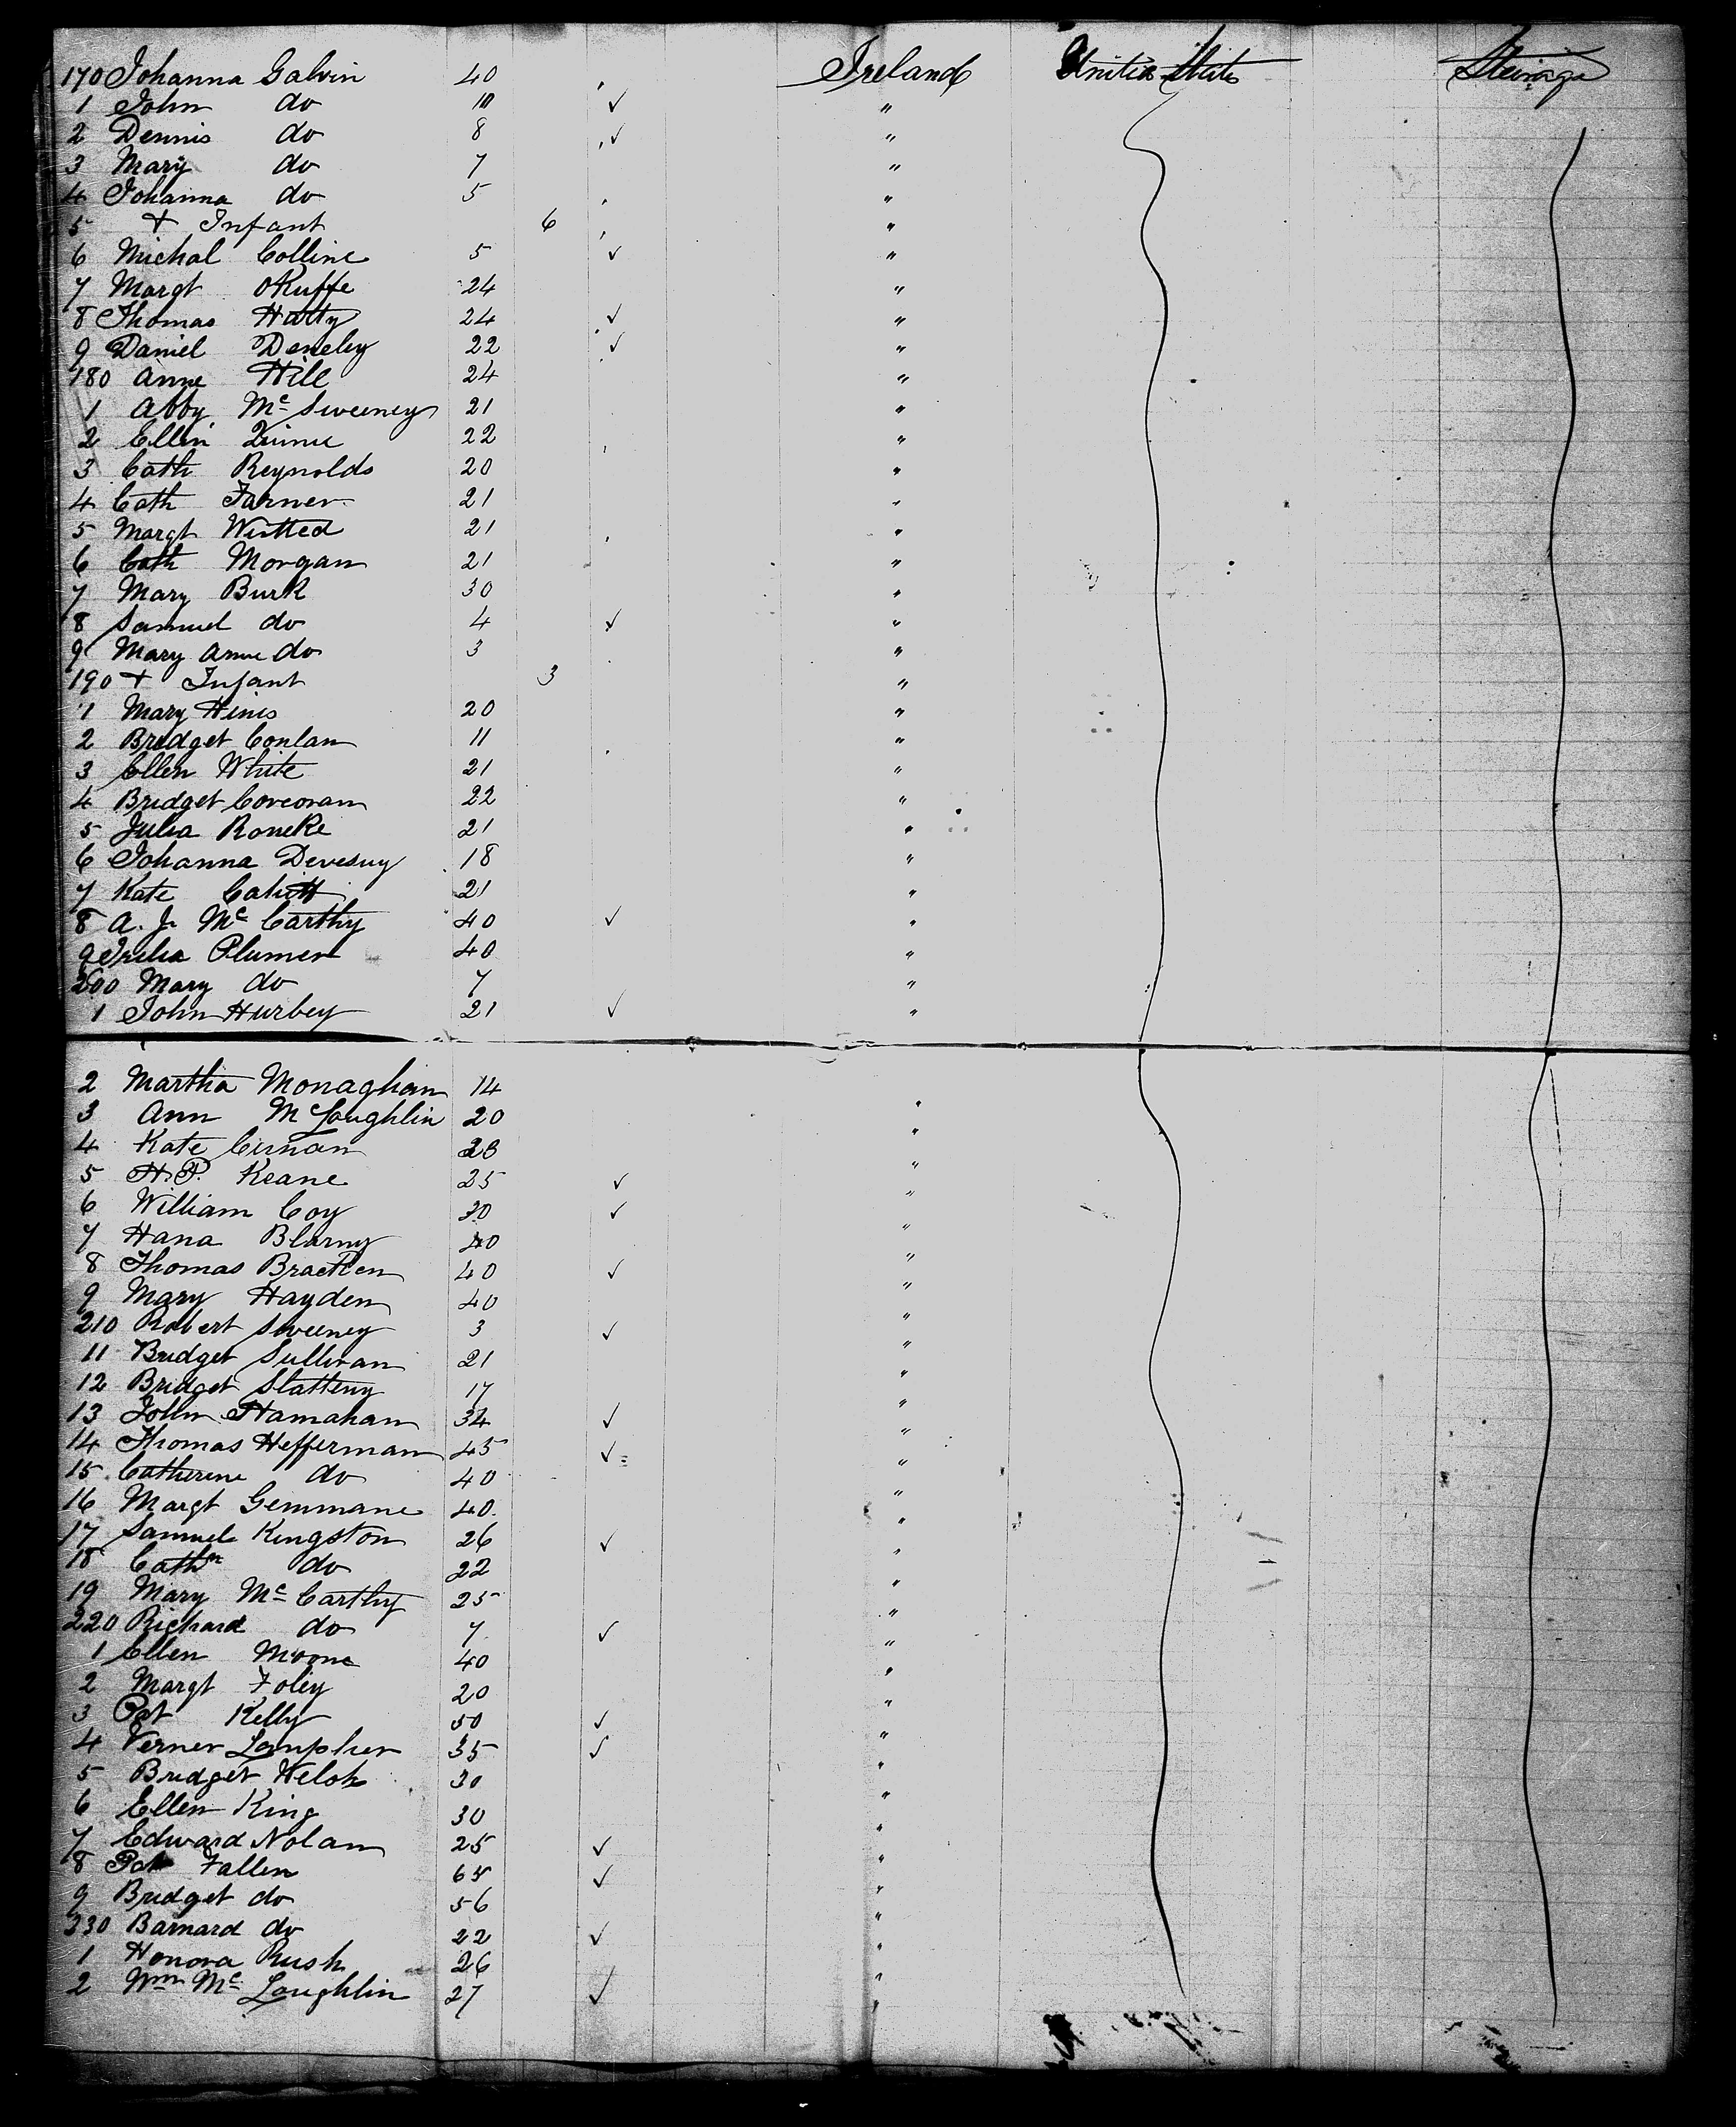 170 Johanna Galvin 40 Ireland United States Steerage
1 John do 10 ✓ "
2 Dennis do 8 ✓ "
3 Mary do 7 "
4 Johanna do 5 "
5 + Infant 6 "
6 Michal Collins 5 ✓ "
7 Margt OKuffe 24 "
8 Thomas Hatty 24 ✓ "
9 Daniel Deneley 22 ✓ "
180 Anne Hill 24 "
1 Abby Mc Sweeney 21 "
2 Ellen 22 "
3 Cath Reynolds 20 "
4 Cath Farner 21 "
5 Margt 21 "
6 Cath Morgan 21 "
7 Mary Burk 30 "
8 Samuel do 4 ✓ "
9 Mary Anne do 3 "
190 + Infant 3 "
1 Mary Hines 20 "
2 Bridget Conlan 11 "
3 Ellen White 21 "
4 Bridget Corcoran 22 "
5 Julia Roneke 21 "
6 Johanna Devesuy 18 "
7 Kate 21 "
8 A. J. Mc Carthy 40 ✓ "
9 Julia Plumer 40 "
200 Mary do 7 "
1 John Hurbey 21 ✓ "
2 Martha Monaghan 14 "
3 Ann McLoughlin 20 "
4 Kate "
5 H.P. Keane 25 ✓ "
6 William Coy 20 ✓ "
7 Hana Blarny 40 "
8 Thomas Bracken 40 ✓ "
9 Mary Hayden 40 "
210 Robert Sweeney 3 ✓ "
11 Bridget Sullivan 21 "
12 Bridget Slattery 17 "
13 John Hamahan 34 ✓ "
14 Thomas Hefferman 45 ✓ "
15 Catherine do 40 "
16 Margt Gemmane 40 "
17 Samuel Kingston 26 ✓ "
18 Cathn do 22 "
19 Mary Mc Carthy 25 "
220 Richard do 7 ✓ "
1 Ellen Moone 40 "
2 Margt Foley 20 "
3 Pat Kelly 50 ✓ "
4 Verner Lanphier 35 ✓ "
5 Bridget Welsh 30 "
6 Ellen King 30 "
7 Edward Nolan 25 ✓ "
8 Pat Fallen 65 ✓ "
9 Bridget do 56 "
230 Barnard do 22 ✓ "
1 Honora Rush 26 "
2 Wm Mc Loughlin 27 ✓ "